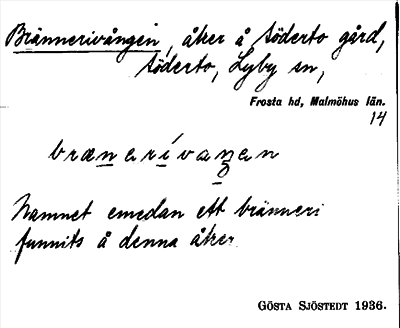 Brännerivången, åker å Söderto gård,
Söderto, Lyby sn,
Frosta hd, Malmöhus län.
14
brænərívaŋən
Namnet emedan ett bränneri
funnits å denna åker
GÖSTA SJÖSTEDT 1936.